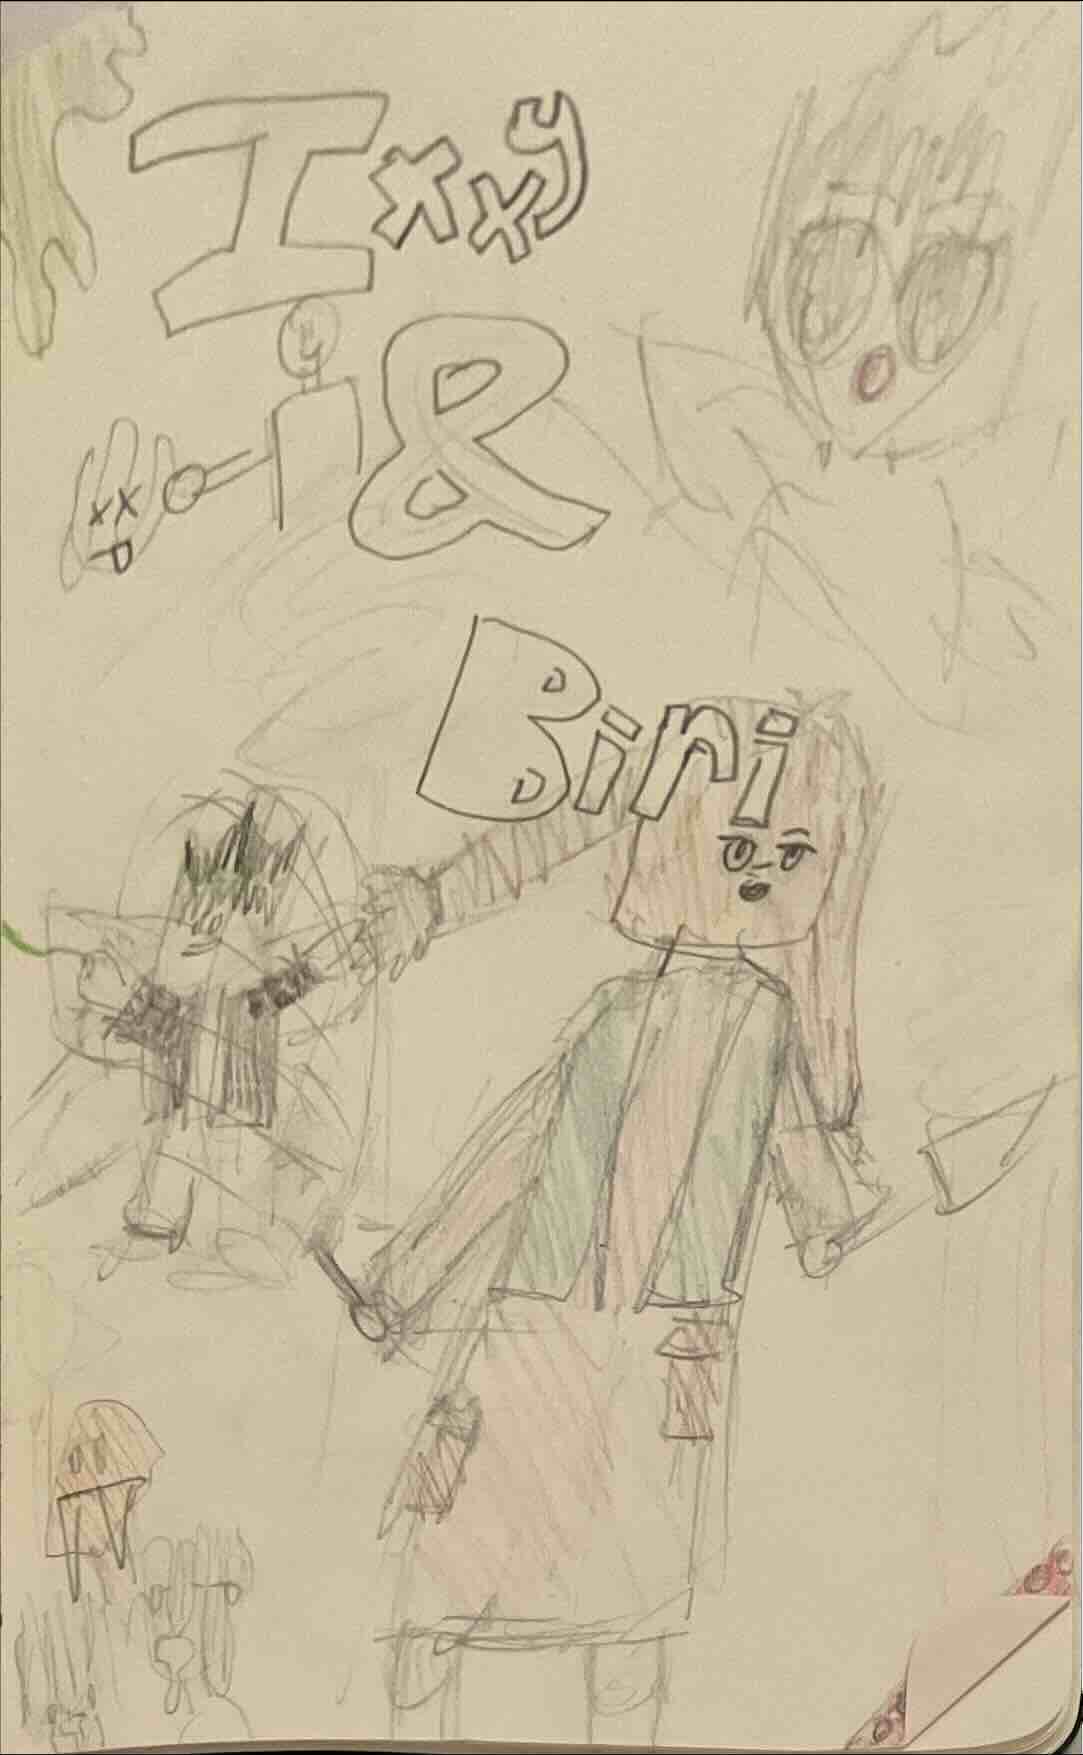 Ixxy
&
Biri